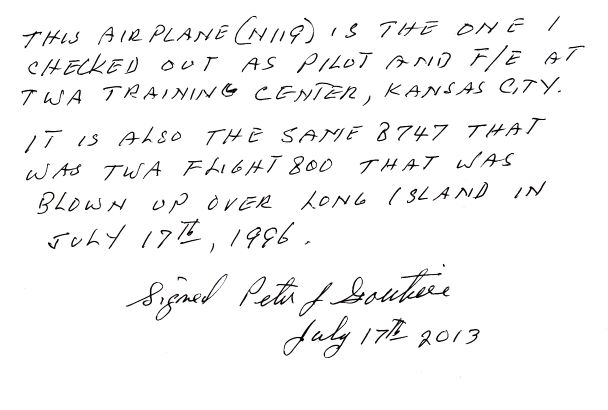 THIS AIRPLANE (N119) IS THE ONE I
CHECKED OUT AS PILOT AND F/E AT
TWA TRAINING CENTER, KANSAS CITY.
IT IS ALSO THE SAME B747 THAT
WAS TWA FLIGHT 800 THAT WAS
BLOWN UP OVER LONG ISLAND IN
JULY 17TH, 1996.
Signed Peter J
July 17TH 2013